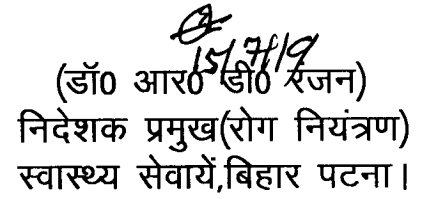 15/7/19
(डॉ0 आर0 डी0 रंजन)
निदेशक प्रमुख(रोग नियंत्रण)
स्वास्थ्य सेवायें,बिहार पटना।